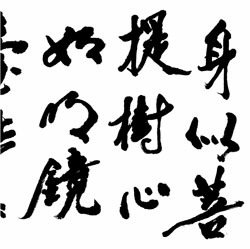 身似菩
提樹心
如明鏡